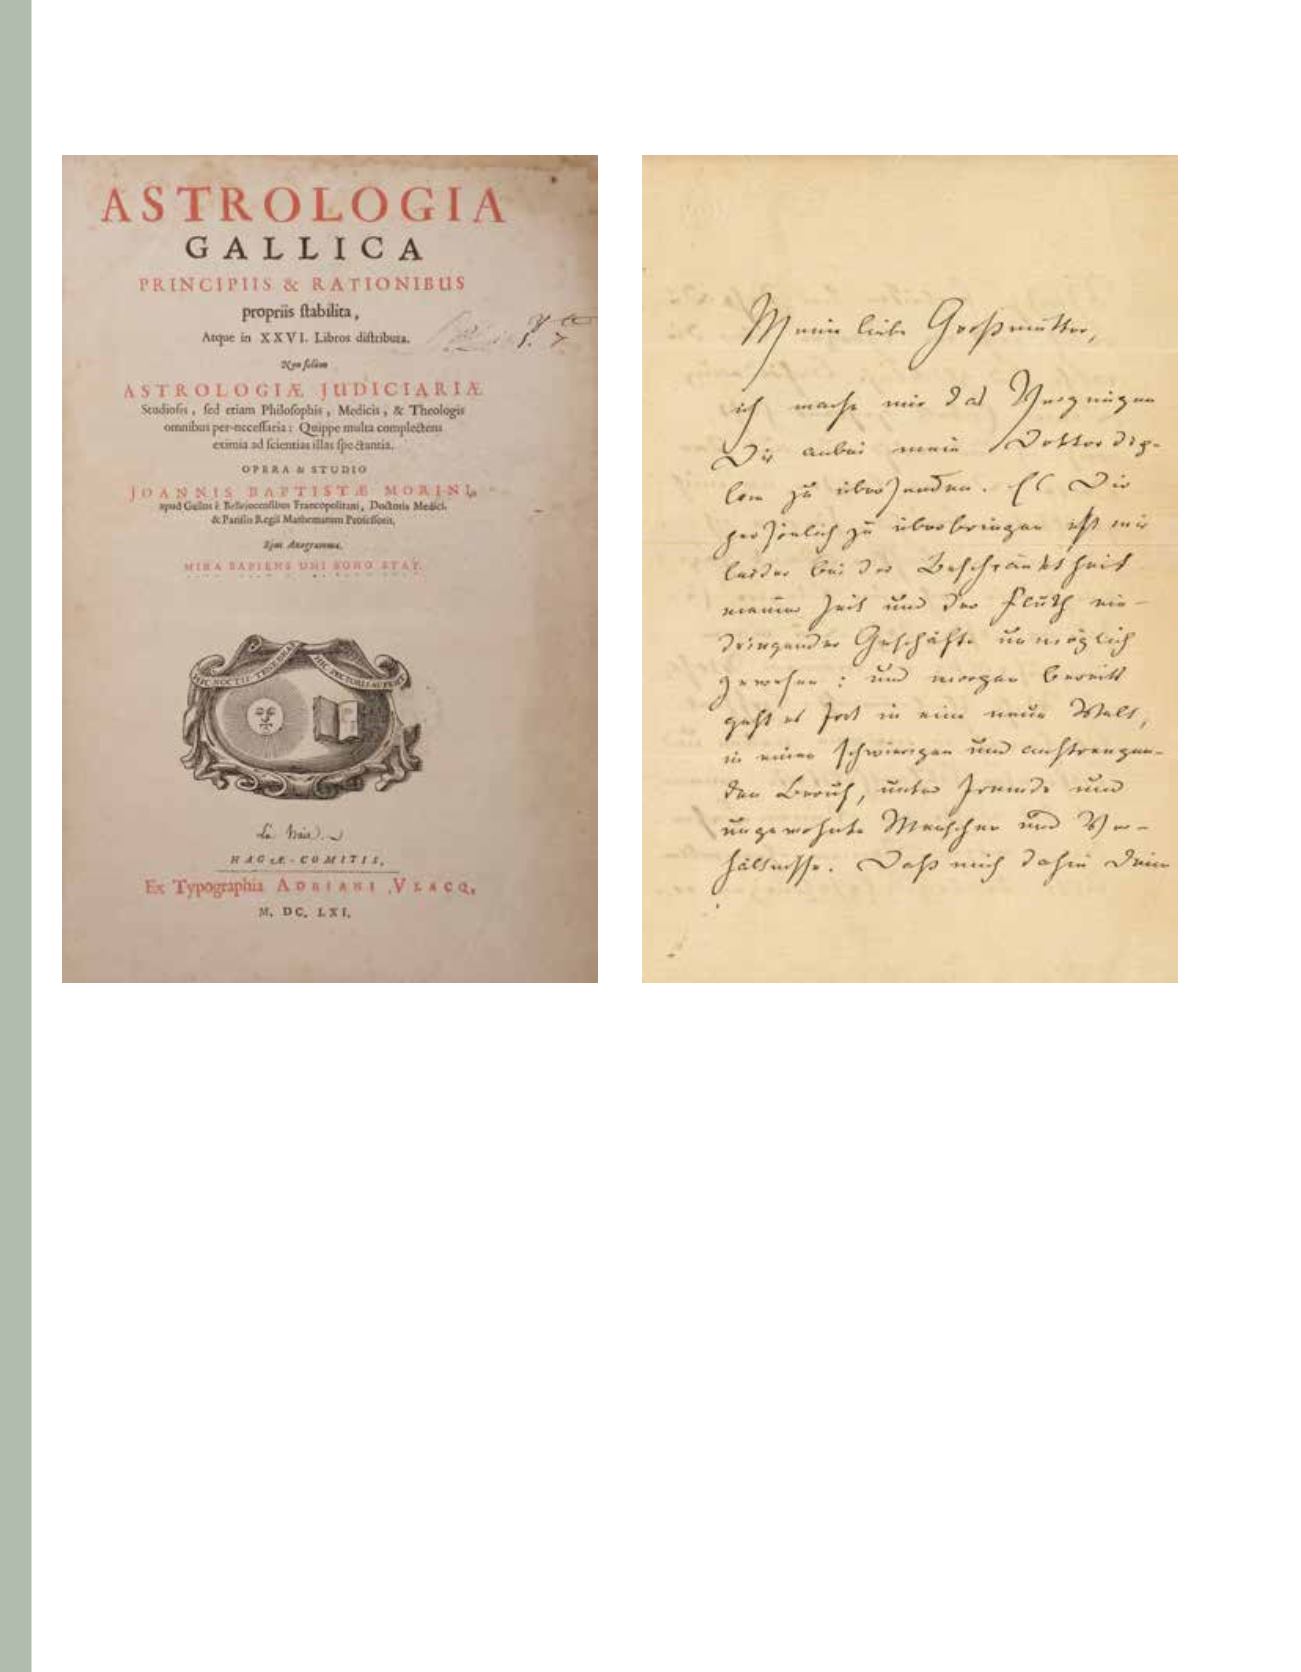 ASTROLOGIA
GALLICA
PRINCIPIIS & RATIONIBUS
propriis ſtabilita,
Atque in XXVI. Libros diſtributa.
Non ſolùm
ASTROLOGIÆ JUDICIARIÆ
Studioſis, ſed etiam Philoſophis, Medicis, & Theologis
omnibus per-neceſſaria: Quippe multa complectens
eximia ad ſcientias illas ſpectantia.
OPERA & STUDIO
JOANNIS BAPTISTÆ MORINI,
apud Gallos è Bellejocenſibus Francopolitani, Doctoris Medici,
& Pariſiis Regii Mathematum Profeſſoris.
Ejus Anagramma.
MIRA SAPIENS UNI BONO STAT.
HIC NOCTIS TENEBRAS HIC PECTORIS AUFERT
HAGÆ-COMITIS,
Ex Typographia ADRIANI VLACQ,
M. DC. LXI.
Meine liebe Großmutter,
ich mache mir das Vergnügen
Dir anbei mein Doktordip-
lom zu übersenden. Es Dir
persönlich zu überbringen ist mir
leider bei der Beschränktheit
meiner Zeit und der Fluth ein-
dringender Geschäfte unmöglich
gewesen: und morgen bereits
geht es fort in eine neue Welt,
in einen schwierigen und anstrengen-
den Beruf, unter fremde und
ungewohnte Menschen und Ver-
hältnisse. Daß mich dahin Dein